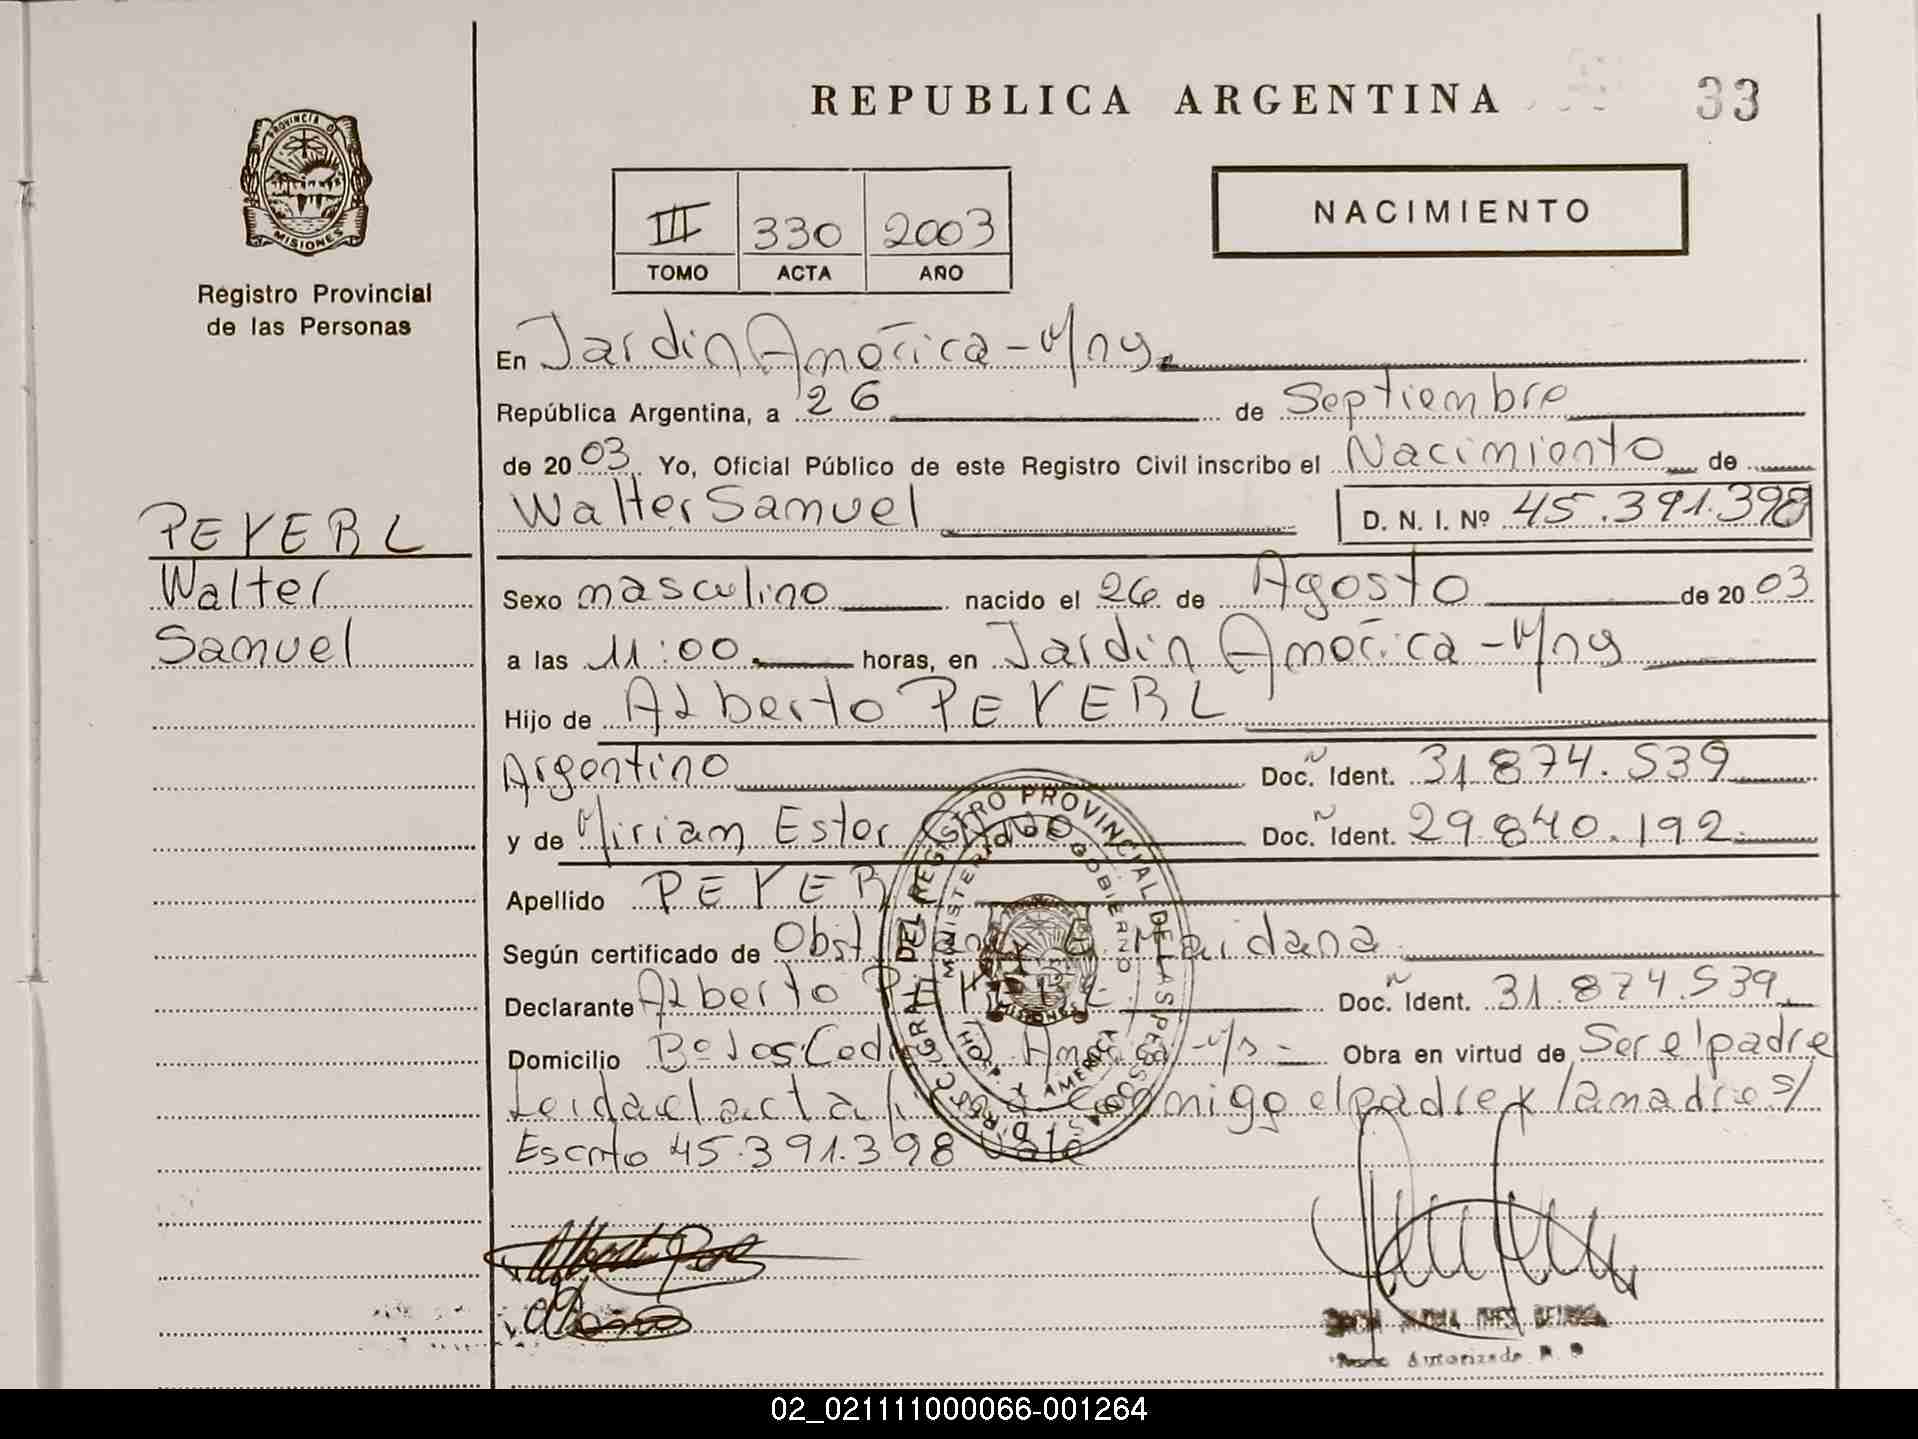 REPUBLICA ARGENTINA
33
PROVINCIA DE
MISIONES
Registro Provincial
de las Personas
III 330 2003
TOMO ACTA AÑO
NACIMIENTO
En Jardín América - Mnes.
República Argentina, a 26 de Septiembre
de 2003 Yo, Oficial Público de este Registro Civil inscribo el Nacimiento de
Walter Samuel D. N. I. Nº 45.391.398
PEYERL
Walter
Samuel
Sexo masculino nacido el 26 de Agosto de 2003
a las 11:00 horas, en Jardín América - Mnes
Hijo de Alberto PEYERL
Argentino Doc. Ident. 31.874.539
y de Miriam Ester Doc. Ident. 29.840.192
Apellido PEYERL
Según certificado de Obst. Maidana
Declarante Alberto PEYERL Doc. Ident. 31.874.539
Domicilio Bº Los Ced América - Ms - Obra en virtud de Ser el padre
Leida el acta conmigo el padre y la madre s/
Escrito 45.391.398 Vale
DIRECC. GRAL. DEL REGISTRO PROVINCIAL DE LAS PERSONAS
MINISTERIO DE GOBIERNO
HOSP. J. AMERICA
MISIONES
Autorizada
02_021111000066-001264